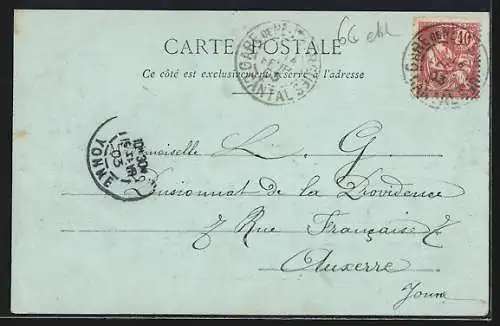 66 chl
CARTE POSTALE
Ce côté est exclusivement réservé à l'adresse
GARE DE
CANTAL
10
GARE DE
YONNE
03
Mademoiselle L. G.
Pensionnat de la Providence
Rue Française
Auxerre
Yonne